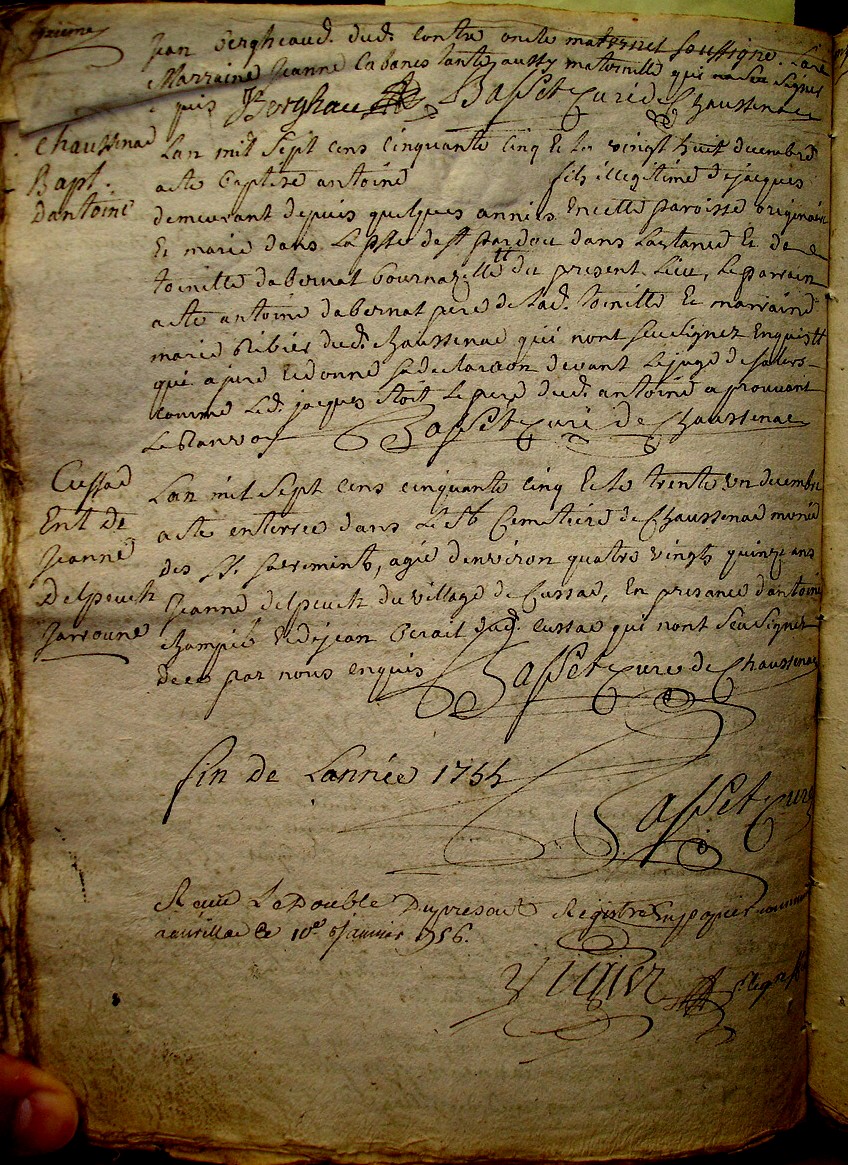 Jean Bergheaud dud. contre oncle maternel soussigné. La
Marraine Jeanne Cabanes tante aussy maternelle qui na sçu signer
Berghaud Basset Curé de Chaussenac
Chaussenac
Bapt.
dantoine
Lan mil sept cens cinquante cinq et le vingt huit decembre
a ete baptisé antoine fils illegitime de jacques
demeurant depuis quelques années en cette paroisse originaire
et marié dans la psse de st pardou dans et de
toinette dabernat du present lieu, le parrain
a ete antoine dabernat pere de lad. toinette et marraine
marie Ribier dud. chaussenac qui nont sçu signer enquis
qui a juré et donné sa declaraon devant le juge de salers
comme led. jacques etoit le pere dud. antoine aprouvant
Basset Curé de Chaussenac
Cussac
Ent de
Jeanne
Delpeuch
Lan mil sept cens cinquante cinq et le trente un decembre
a ete enterree dans le st Cemetiere de Chaussenac munie
des sts sacrements, agée denviron quatre vingts quinze ans
Jeanne delpeuch du village de Cussac, en presance dantoine
et de jean dud. cussac qui nont sçu signer
de ce par nous enquis Basset Curé de Chaussenac
fin de Lannée 1755
Basset Curé
Receu Le Double Du present Registre En papier commun
a aurillac ce 10e janvier 1756.